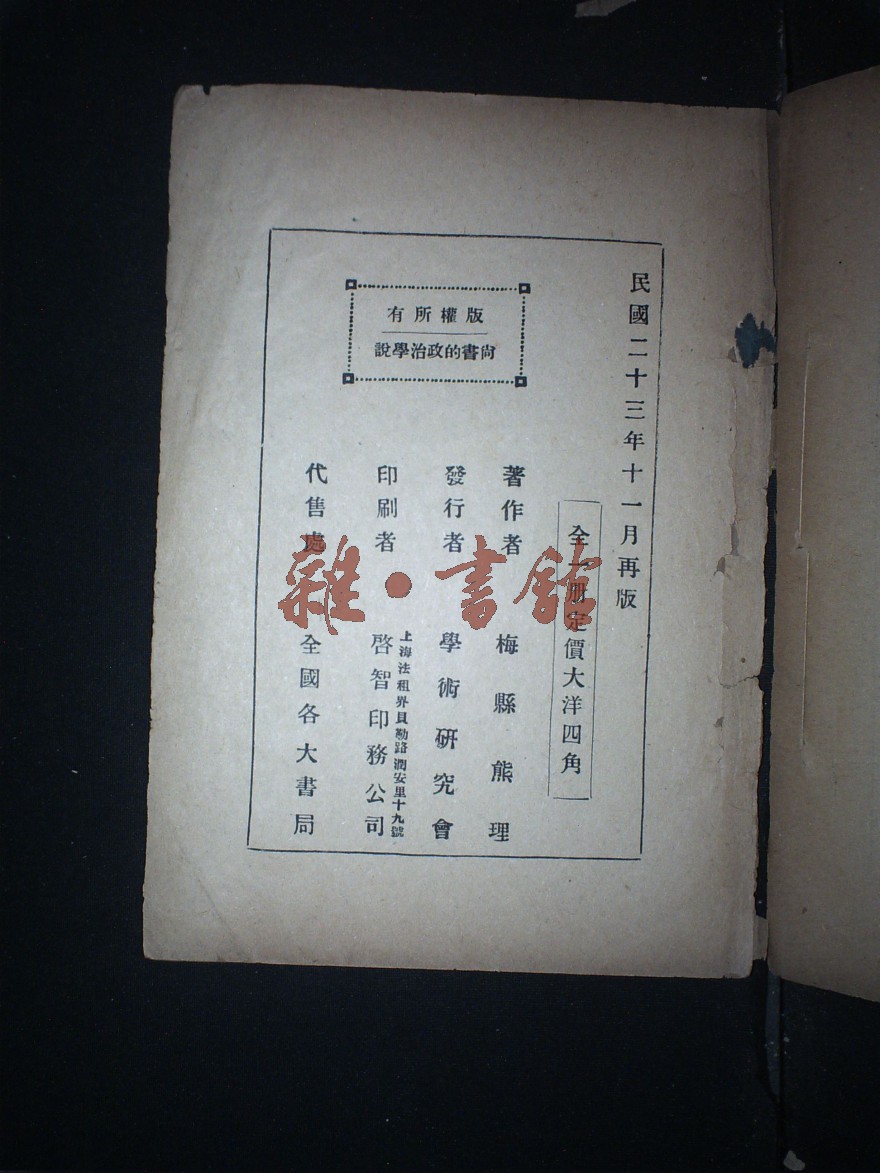 民國二十三年十一月再版
全一册定價大洋四角
版權所有
尚書的政治學說
著作者 梅縣熊理
發行者 學術研究會
印刷者 上海法租界貝勒路潤安里十九號
啓智印務公司
代售處 全國各大書局
雜·書館